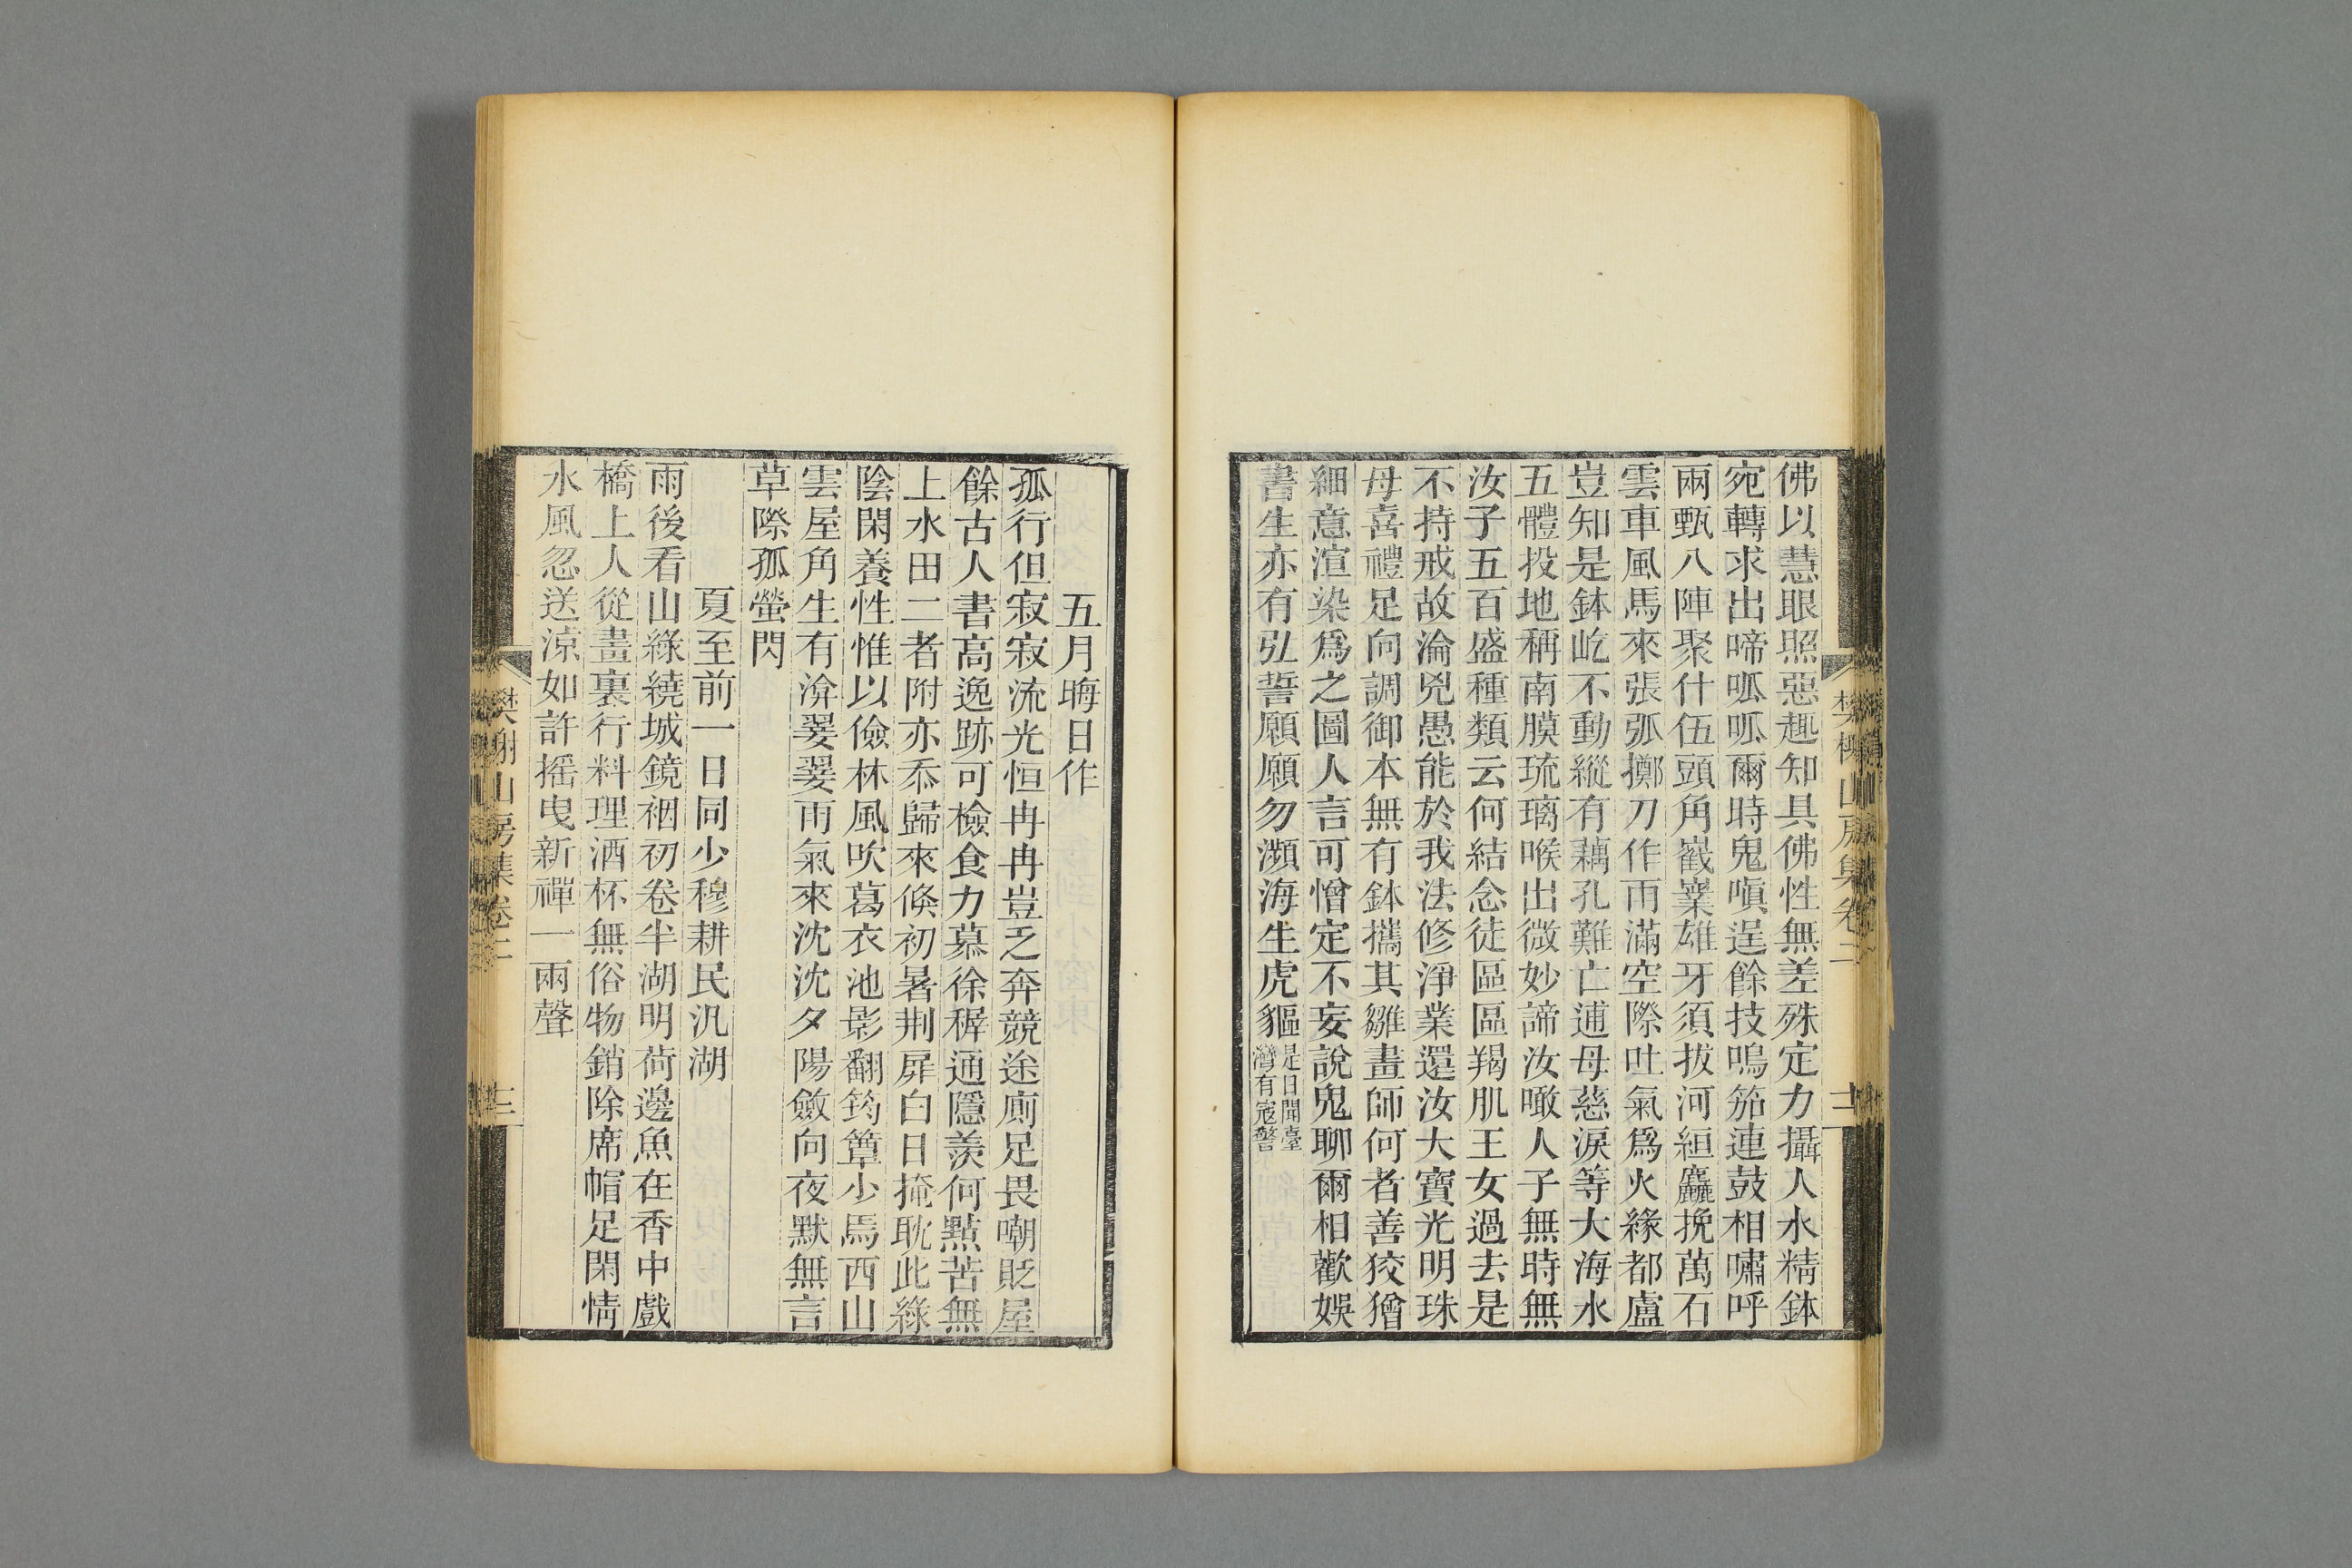 佛以慧眼照惡趣知具佛性無差殊定力攝人水精鉢
宛轉求出啼呱呱爾時鬼嗔逞餘技鳴笳連鼓相嘯呼
兩甄八陣聚什伍頭角嶻嶪雄牙須拔河絙麤挽萬石
雲車風馬來張弧擲刀作雨滿空際吐氣爲火緣都盧
豈知是鉢屹不動縱有藕孔難亡逋母慈淚等大海水
五體投地稱南膜琉璃喉出微妙諦汝噉人子無時無
汝子五百盛種類云何結念徒區區羯肌王女過去是
不持戒故淪兇愚能於我法修淨業還汝大寶光明珠
母喜禮足向調御本無有鉢攜其雛畫師何者善狡獪
細意渲染爲之圖人言可憎定不妄說鬼聊爾相歡娛
書生亦有弘誓願願勿瀕海生虎貙是日聞臺灣有寇警
樊榭山房集卷二
五月晦日作
孤行但寂寂流光恒冉冉豈乏奔競途廁足畏嘲貶屋
餘古人書高逸跡可檢食力慕徐穉通隱羨何點苦無
上水田二者附亦忝歸來倏初暑荆扉白日掩耽此綠
陰閑養性惟以儉林風吹葛衣池影翻筠簟少焉西山
雲屋角生有渰翣翣雨氣來沈沈夕陽斂向夜默無言
草際孤螢閃
夏至前一日同少穆耕民汎湖
雨後看山綠繞城鏡裀初卷半湖明荷邊魚在香中戲
橋上人從畫裏行料理酒杯無俗物銷除席帽足閑情
水風忽送涼如許搖曳新襌一兩聲
樊榭山房集卷二